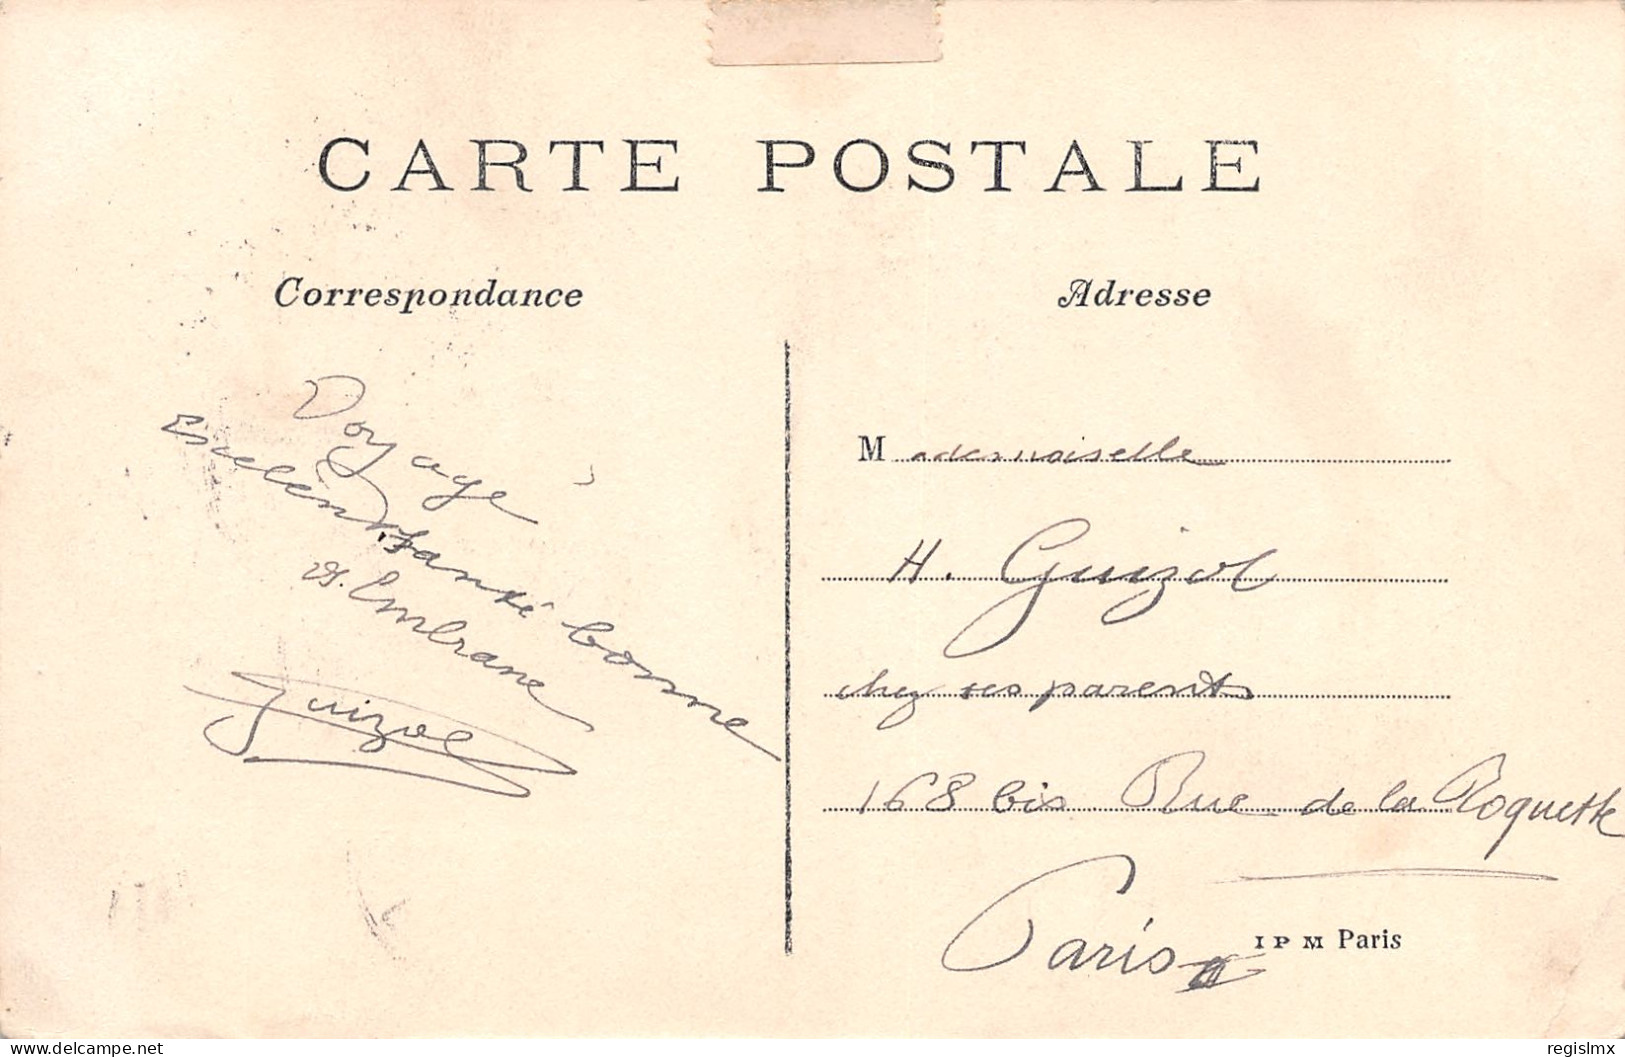 CARTE POSTALE
Correspondance
Voyage
Excellent, santé bonne
Embrane
Guizol
Adresse
Mademoiselle
H. Guizol
chez ses parents
168 bis Rue de la Roquette
Paris
IPM Paris
delcampe.net
regislmx